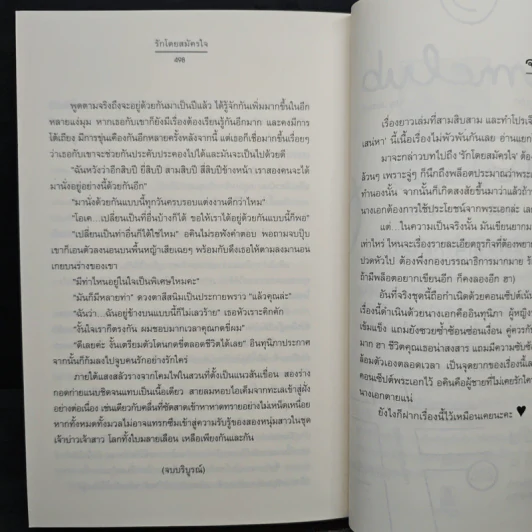 รักโดยสมัครใจ
498
พูดตามจริงถึงจะอยู่ด้วยกันมาเป็นปีแล้ว ได้รู้จักกันเพิ่มมากขึ้นในอีก
หลายแง่มุม หากเธอกับเขาก็ยังมีเรื่องต้องเรียนรู้กันอีกมาก และคงมีการ
โต้เถียง มีการขุ่นเคืองกันอีกหลายครั้งหลังจากนี้ แต่เธอก็เชื่อมากขึ้นเรื่อยๆ
ว่าเธอกับเขาจะช่วยกันประคับประคองไปได้และมันจะเป็นไปด้วยดี
"ฉันหวังว่าอีกสิบปี ยี่สิบปี สามสิบปี สี่สิบปีข้างหน้า เราสองคนจะได้
มานั่งอยู่อย่างนี้ด้วยกันอีก"
"มานั่งด้วยกันแบบนี้ทุกวันครบรอบแต่งงานดีกว่าไหม"
"โอเค...เปลี่ยนเป็นที่อื่นบ้างก็ได้ ขอให้เราได้อยู่ด้วยกันแบบนี้ก็พอ"
"เปลี่ยนเป็นท่าอื่นก็ได้ใช่ไหม" อคินไม่รอฟังคำตอบ พอถามจบปุ๊บ
เขาก็เอนตัวลงนอนบนพื้นหญ้าเสียเฉยๆ พร้อมกับดึงเธอให้ตามลงมานอน
เกยบนร่างของเขา
"มีท่าไหนอยู่ในใจเป็นพิเศษไหมคะ"
"มันก็มีหลายท่า" ดวงตาสีสนิมเป็นประกายพราว "แล้วคุณล่ะ"
"ฉันว่า...ฉันอยู่ข้างบนแบบนี้ก็ไม่เลวร้าย" เธอหัวเราะคิกคัก
"งั้นใจเราก็ตรงกัน ผมชอบมากเวลาคุณกดขี่ผม"
"ดีเลยค่ะ งั้นเตรียมตัวโดนกดขี่ตลอดชีวิตได้เลย" อินทุนิภาประกาศ
จากนั้นก็ก้มลงไปจูบคนรักอย่างรักใคร่
ภายใต้แสงสลัวรางจากโคมไฟในสวนที่ตั้งเป็นแนวสันเขื่อน สองร่าง
กอดก่ายแนบชิดจนแทบเป็นเนื้อเดียว สายลมหอบไอเค็มจากทะเลเข้าสู่ฝั่ง
อย่างต่อเนื่อง เช่นเดียวกับคลื่นที่ซัดสาดเข้าหาหาดทรายอย่างไม่เหน็ดเหนื่อย
หากทั้งหมดทั้งมวลไม่อาจแทรกซึมเข้าสู่ความรับรู้ของสองหนุ่มสาวในชุด
เจ้าบ่าวเจ้าสาว โลกทั้งใบมลายเลือน เหลือเพียงกันและกัน
(จบบริบูรณ์)
เรื่องยาวเล่มที่สามสิบสาม และทำโปรเจ็
เสน่หา' นี้เนื้อเรื่องไม่พัวพันกันเลย อ่านแยก
มาจะกล่าวบทไปถึง 'รักโดยสมัครใจ' ต้อง
ล้วนๆ เพราะจู่ๆ ก็นึกถึงพล็อตประมาณว่าพระเ
ทำนองนั้น จากนั้นก็เกิดสงสัยขึ้นมาว่าแล้วถ้า
นางเอกต้องการใช้ประโยชน์จากพระเอกล่ะ เลย
แต่...ในความเป็นจริงนั้น มันเขียนยากม
เท่าไหร่ ไหนจะเรื่องรายละเอียดธุรกิจที่ต้องพยา
ปวดหัวไป ต้องพึ่งกองบรรณาธิการมากมาย
ถ้ามีพล็อตอยากเขียนอีก ก็คงลองอีก ฮา)
อันที่จริงชุดนี้ถือกำเนิดด้วยคอนเซ็ปต์เน้น
เรื่องนี้ดำเนินด้วยนางเอกคืออินทุนิภา ผู้หญิง
เข้มแข็ง แถมยังชวยซ้ำซ้อนซ่อนเงื่อน คู่ควรกั
มาก ฮา ชีวิตคุณเธอน่าสงสาร แถมมีความซับซ้
ล้อมตัวเองตลอดเวลา เป็นจุดยากของเรื่องนี้เล
คอนเซ็ปต์พระเอกไว้ อคินคือผู้ชายที่ไม่เคยรักใค
นางเอกตายแน่
ยังไงก็ฝากเรื่องนี้ไว้เหมือนเคยนะคะ ♥